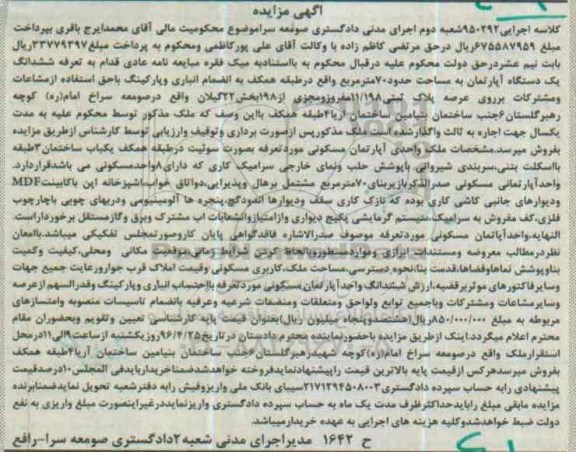 آگهی مزایده
کلاسه اجرایی۹۵۰۲۹۲شعبه دوم اجرای مدنی دادگستری صومعه سراموضوع محکومیت مالی آقای محمدایرج باقری بپرداخت
مبلغ ۶۷۵۵۸۷۹۵۹ریال درحق مرتضی کاظم زاده با وکالت آقای علی پورکاظمی ومحکوم به پرداخت مبلغ۳۳۷۷۹۳۹۷ریال
بابت نیم عشردرحق دولت محکوم علیه درقبال محکوم به بااستنادبه میک فقره مبایعه نامه عادی قدام به تعرفه ششدانگ
یک دستگاه آپارتمان به مساحت حدود۷۰مترمربع واقع درطبقه همکف به انضمام انباری وپارکینگ باحق استفاده ازمشاعات
ومشترکات برروی عرصه پلاک ثبتی۱۱/۱۹۸مفروزومجزی از۱۹۸بخش۲۲گیلان واقع درصومعه سراخ امام(ره) کوچه
رهبرگلستان۶جنب ساختمان بنیامین ساختمان آریا۴طبقه همکف بااین وصف که ملک مذکور توسط محکوم علیه به مدت
یکسال جهت اجاره به ثالث واگذارشده است.ملک مذکورپس ازصورت برداری وتوقیف وارزیابی توسط کارشناس ازطریق مزایده
بفروش میرسد.مشخصات ملک واحدی آپارتمان مسکونی موردتعرفه بصورت سوئیت درطبقه همکف یکباب ساختمان۳طبقه
بااسکلت بتنی،سربندی شیروانی باپوشش حلب ونمای خارجی سرامیک کاری که دارای۸واحدمسکونی می باشدقراردارد.
واحدآپارتمانی مسکونی صدرالذکربازیربنای۷۰مترمربع مشتمل برهال وپذیرایی،دواتاق خواب،اشپزخانه اپن باکابینتMDF
ودیوارهای جانبی کاشی کاری بوده که نازک کاری سقف ودیوارها اندودگچ،پنجره ها آلومینیومی ودربهای چوبی باچارچوب
فلزی،کف مفروش به سرامیک،سیستم گرمایشی پکیج دیواری وازامتیازوانشعابات اب مشترک وبرق وگازمستقل برخورداراست.
النهایه،واحدآپاتمان مسکونی موردتعرفه موصوف صدرالاشاره فاقدگواهی پایان کاروصورتمجلس تفکیکی میباشد.باامعان
نظردرمطالب معروضه ومستندات ابرازی ومواردمسطوروبالحاظ کردن شرایط زمانی،موقعیت مکانی ومحلی،کیفیت وکمیت
بناوپوشش نماهاوفضاها،قدمت بنا،نحوه دسترسی،مساحت ملک،کاربری مسکونی وقیمت املاک قرب جواررعایت جمیع جهات
وسایرفاکتورهای موثربرقضیه،ارزش ششدانگ واحدآپارتمان مسکونی موردتعرفه بااحتساب انباری وپارکینگ وقدرالسهم ازعرصه
وسایرمشاعات ومشترکات وباجمیع توابع ولواحق ومتعلقات ومنضمات شرعیه وعرفیه بانضمام تاسیسات منصوبه وامتیازهای
مربوطه به مبلغ ۸۵۰/۰۰۰/۰۰۰ریال(هشتصدوپنجاه میلیون ریال)بعنوان قیمت پایه کارشناسی تعیین وتقویم وبحضوران مقام
محترم اعلام میگردد.اینک ازطریق مزایده باحضورنماینده محترم دادستان درتاریخ۹۶/۴/۲۵روزیکشنبه ازساعت۹الی۱۱درمحل
استقرارملک واقع درصومعه سراخ امام(ره)کوچه شهیدرهبرگلستان۶جنب ساختمان بنیامین ساختمان آریا۴طبقه همکف
بفروش میرسدهرکس ازقیمت پایه بالاترین قیمت راپیشنهادنمایدفروخته خواهدشدضمناخریداربایدفی المجلس۱۰درصدقیمت
پیشنهادی رابه حساب سپرده دادگستری۲۱۷۱۲۹۴۵۰۸۰۰۳سیبای بانک ملی واریزوفیش رابه دفترشعبه تحویل نمایدضمنابرنده
مزایده مابقی مبلغ رابایدحداکثرظرف مدت یک ماه به حساب سپرده دادگستری واریزنمایددرغیراینصورت مبلغ واریزی به نفع
دولت ضبط خواهدشدوکلیه هزینه های اجرایی به عهده خریدارمیباشد.
ح ۱۶۴۲ مدیراجرای مدنی شعبه۲دادگستری صومعه سرا-رافع